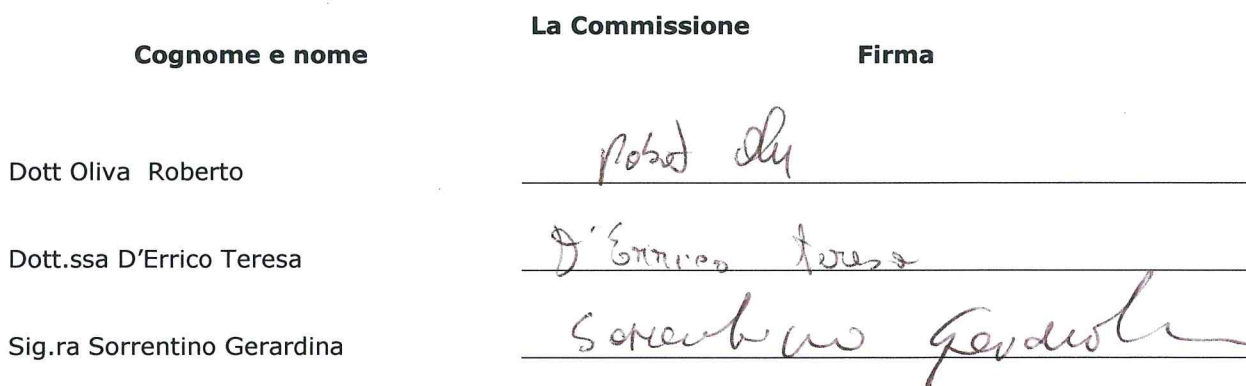 La Commissione
Cognome e nome Firma
Dott Oliva Roberto
Dott.ssa D'Errico Teresa D'Errico Teresa
Sig.ra Sorrentino Gerardina Sorrentino